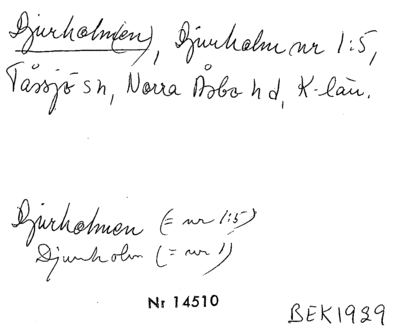 Djurholm(en), Djurholm nr 1:5,
Tåssjö sn, Norra Åsbo hd, K-län.
Djurholmen (= nr 1:5)
Djurholm (= nr 1)
Nr 14510
BEK1929